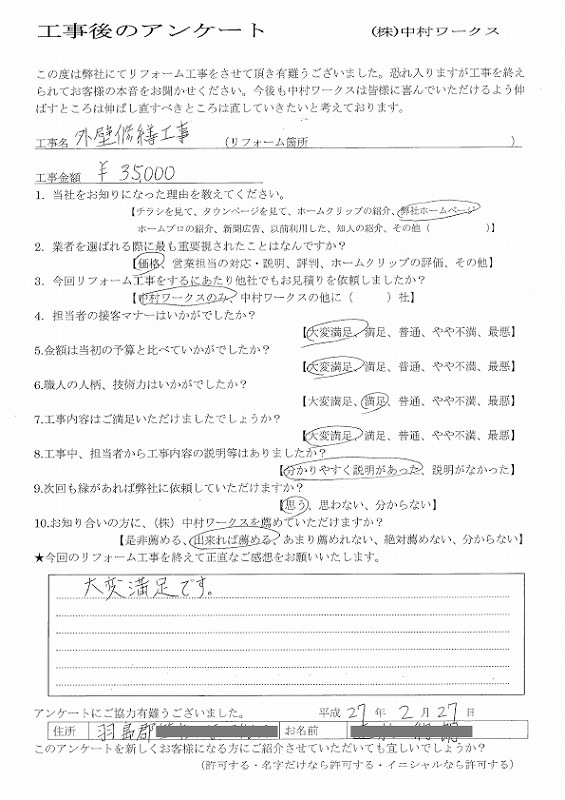 工事後のアンケート (株)中村ワークス
この度は弊社にてリフォーム工事をさせて頂き有難うございました。恐れ入りますが工事を終え
られてお客様の本音をお聞かせください。今後も中村ワークスは皆様に喜んでいただけるよう伸
ばすところは伸ばし直すべきところは直していきたいと考えております。
工事名 外壁修繕工事 (リフォーム箇所 )
工事金額 ¥35,000
1. 当社をお知りになった理由を教えてください。
【チラシを見て、タウンページを見て、ホームクリップの紹介、弊社ホームページ
ホームプロの紹介、新聞広告、以前利用した、知人の紹介、その他( )】
2. 業者を選ばれる際に最も重要視されたことはなんですか？
【価格、営業担当の対応・説明、評判、ホームクリップの評価、その他】
3. 今回リフォーム工事をするにあたり他社でもお見積りを依頼しましたか？
【中村ワークスのみ、中村ワークスの他に( )社】
4. 担当者の接客マナーはいかがでしたか？
【大変満足、満足、普通、やや不満、最悪】
5.金額は当初の予算と比べていかがでしたか？
【大変満足、満足、普通、やや不満、最悪】
6.職人の人柄、技術力はいかがでしたか？
【大変満足、満足、普通、やや不満、最悪】
7.工事内容はご満足いただけましたでしょうか？
【大変満足、満足、普通、やや不満、最悪】
8.工事中、担当者から工事内容の説明等はありましたか？
【分かりやすく説明があった、説明がなかった】
9.次回も縁があれば弊社に依頼していただけますか？
【思う、思わない、分からない】
10.お知り合いの方に、(株)中村ワークスを薦めていただけますか？
【是非薦める、出来れば薦める、あまり薦めれない、絶対薦めない、分からない】
★今回のリフォーム工事を終えて正直なご感想をお願いいたします。
大変満足です。
アンケートにご協力有難うございました。 平成 27 年 2 月 27 日
住所 羽島郡 お名前
このアンケートを新しくお客様になる方にご紹介させていただいても宜しいでしょうか？
(許可する・名字だけなら許可する・イニシャルなら許可する)